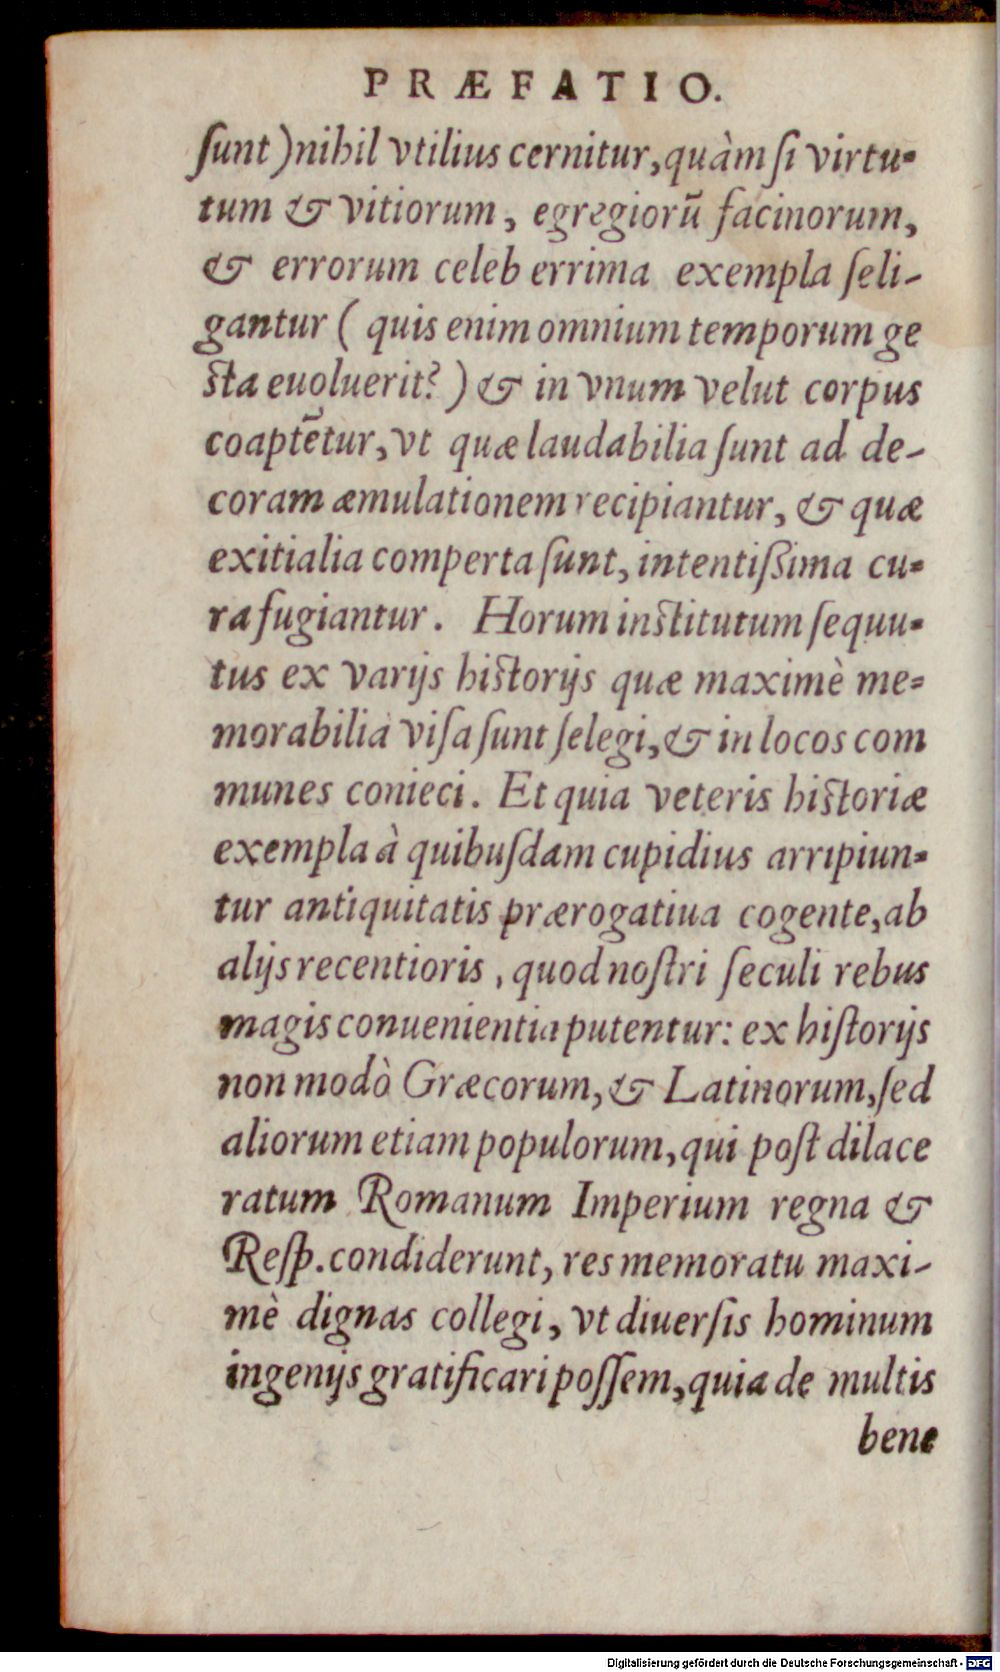 PRÆFATIO.
ſunt) nihil vtilius cernitur, quàm ſi virtu-
tum & vitiorum, egregiorū facinorum,
& errorum celeb errima exempla ſeli-
gantur ( quis enim omnium temporum ge
ſta euoluerit? ) & in vnum velut corpus
coaptētur, vt quæ laudabilia ſunt ad de-
coram æmulationem recipiantur, & quæ
exitialia comperta ſunt, intentiſſima cu-
ra fugiantur. Horum inſtitutum ſequu-
tus ex varijs hiſtorijs quæ maximè me-
morabilia viſa ſunt ſelegi, & in locos com
munes conieci. Et quia veteris hiſtoriæ
exempla à quibuſdam cupidius arripiun-
tur antiquitatis prærogatiua cogente, ab
alijs recentioris, quod noſtri ſeculi rebus
magis conuenientia putentur: ex hiſtorijs
non modò Græcorum, & Latinorum, ſed
aliorum etiam populorum, qui poſt dilace
ratum Romanum Imperium regna &
Reſp. condiderunt, res memoratu maxi-
mè dignas collegi, vt diuerſis hominum
ingenijs gratificari poſſem, quia de multis
bene
Digitalisierung gefördert durch die Deutsche Forschungsgemeinschaft - DFG